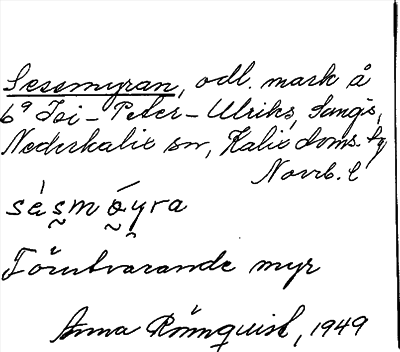 Sessmyran, odl. mark å
6⁹ Isi-Peter-Ulriks, Sangis,
Nederkalix sn, Kalix doms. tg
Norrb. l
Förutvarande myr
Anna Rönnquist, 1949